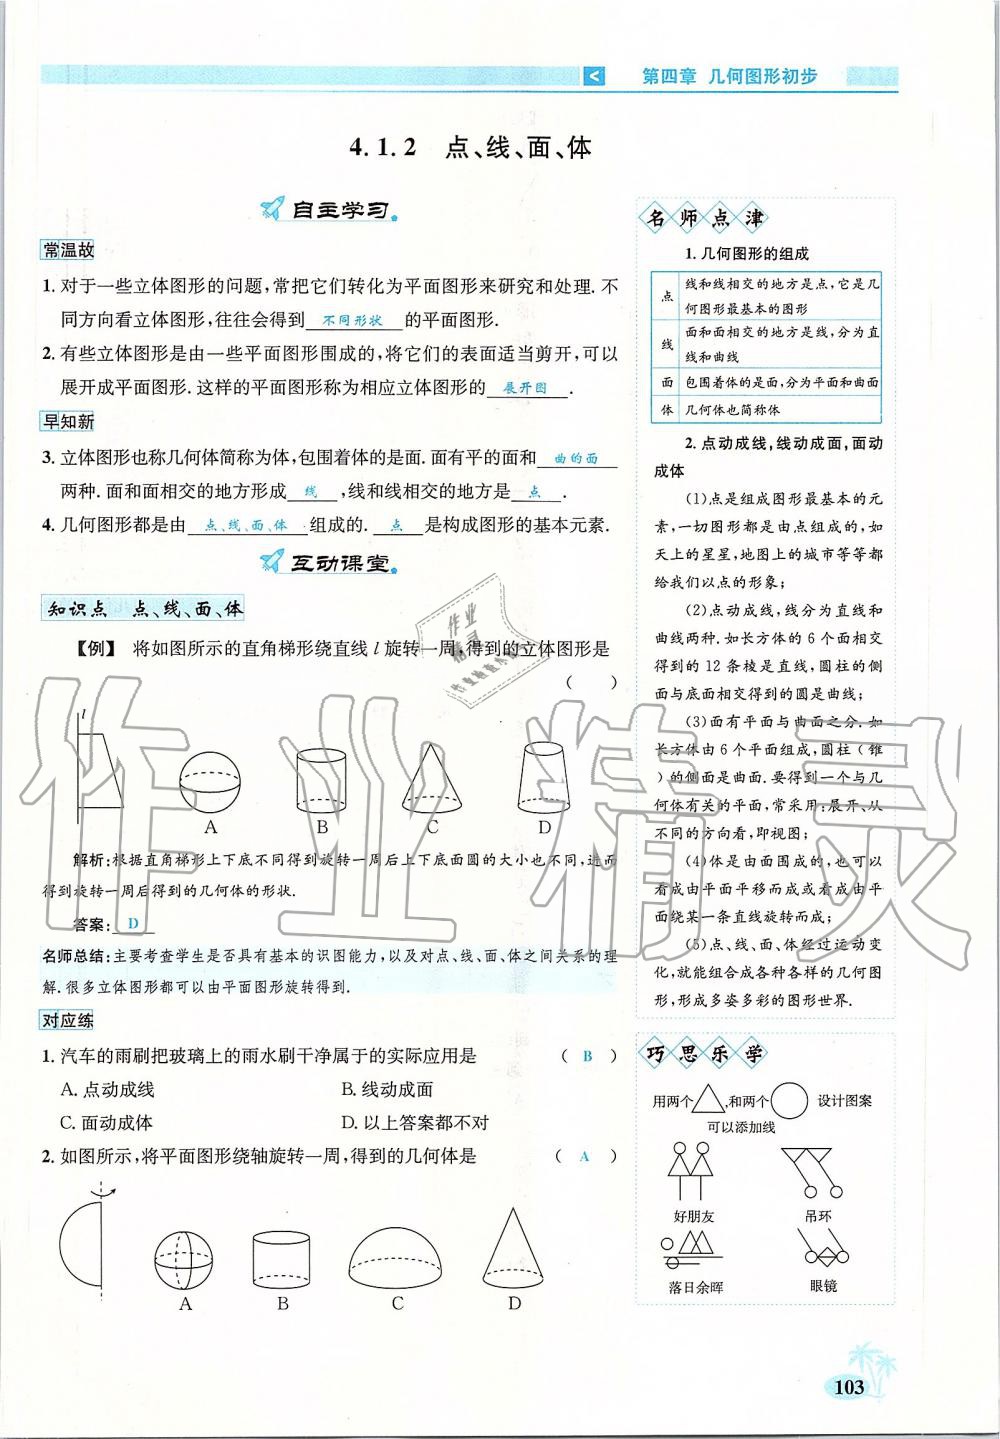 第四章 几何图形初步
4.1.2 点、线、面、体
自主学习
常温故
1. 对于一些立体图形的问题,常把它们转化为平面图形来研究和处理.不
同方向看立体图形,往往会得到 不同形状 的平面图形.
2. 有些立体图形是由一些平面图形围成的,将它们的表面适当剪开,可以
展开成平面图形.这样的平面图形称为相应立体图形的 展开图 .
早知新
3. 立体图形也称几何体简称为体,包围着体的是面.面有平的面和 曲的面
两种.面和面相交的地方形成 线 ,线和线相交的地方是 点 .
4. 几何图形都是由 点、线、面、体 组成的. 点 是构成图形的基本元素.
互动课堂
知识点 点、线、面、体
【例】 将如图所示的直角梯形绕直线 l 旋转一周,得到的立体图形是
( )
l
A B C D
解析:根据直角梯形上下底不同得到旋转一周后上下底面圆的大小也不同,进而
得到旋转一周后得到的几何体的形状.
答案: D
名师总结:主要考查学生是否具有基本的识图能力,以及对点、线、面、体之间关系的理
解.很多立体图形都可以由平面图形旋转得到.
对应练
1. 汽车的雨刷把玻璃上的雨水刷干净属于的实际应用是 ( B )
A. 点动成线 B. 线动成面
C. 面动成体 D. 以上答案都不对
2. 如图所示,将平面图形绕轴旋转一周,得到的几何体是 ( A )
A B C D
名师点津
1. 几何图形的组成
点 线和线相交的地方是点,它是几
何图形最基本的图形
线 面和面相交的地方是线,分为直
线和曲线
面 包围着体的是面,分为平面和曲面
体 几何体也简称体
2. 点动成线,线动成面,面动
成体
(1)点是组成图形最基本的元
素,一切图形都是由点组成的,如
天上的星星,地图上的城市等等都
给我们以点的形象;
(2)点动成线,线分为直线和
曲线两种.如长方体的 6 个面相交
得到的 12 条棱是直线,圆柱的侧
面与底面相交得到的圆是曲线;
(3)面有平面与曲面之分.如
长方体由 6 个平面组成,圆柱(锥
)的侧面是曲面.要得到一个与几
何体有关的平面,常采用:展开、从
不同的方向看,即视图;
(4)体是由面围成的,也可以
看成由平面平移而成或看成由平
面绕某一条直线旋转而成;
(5)点、线、面、体经过运动变
化,就能组合成各种各样的几何图
形,形成多姿多彩的图形世界.
巧思乐学
用两个 ,和两个 设计图案
可以添加线
好朋友 吊环
落日余晖 眼镜
103
作业精灵
作业
精灵